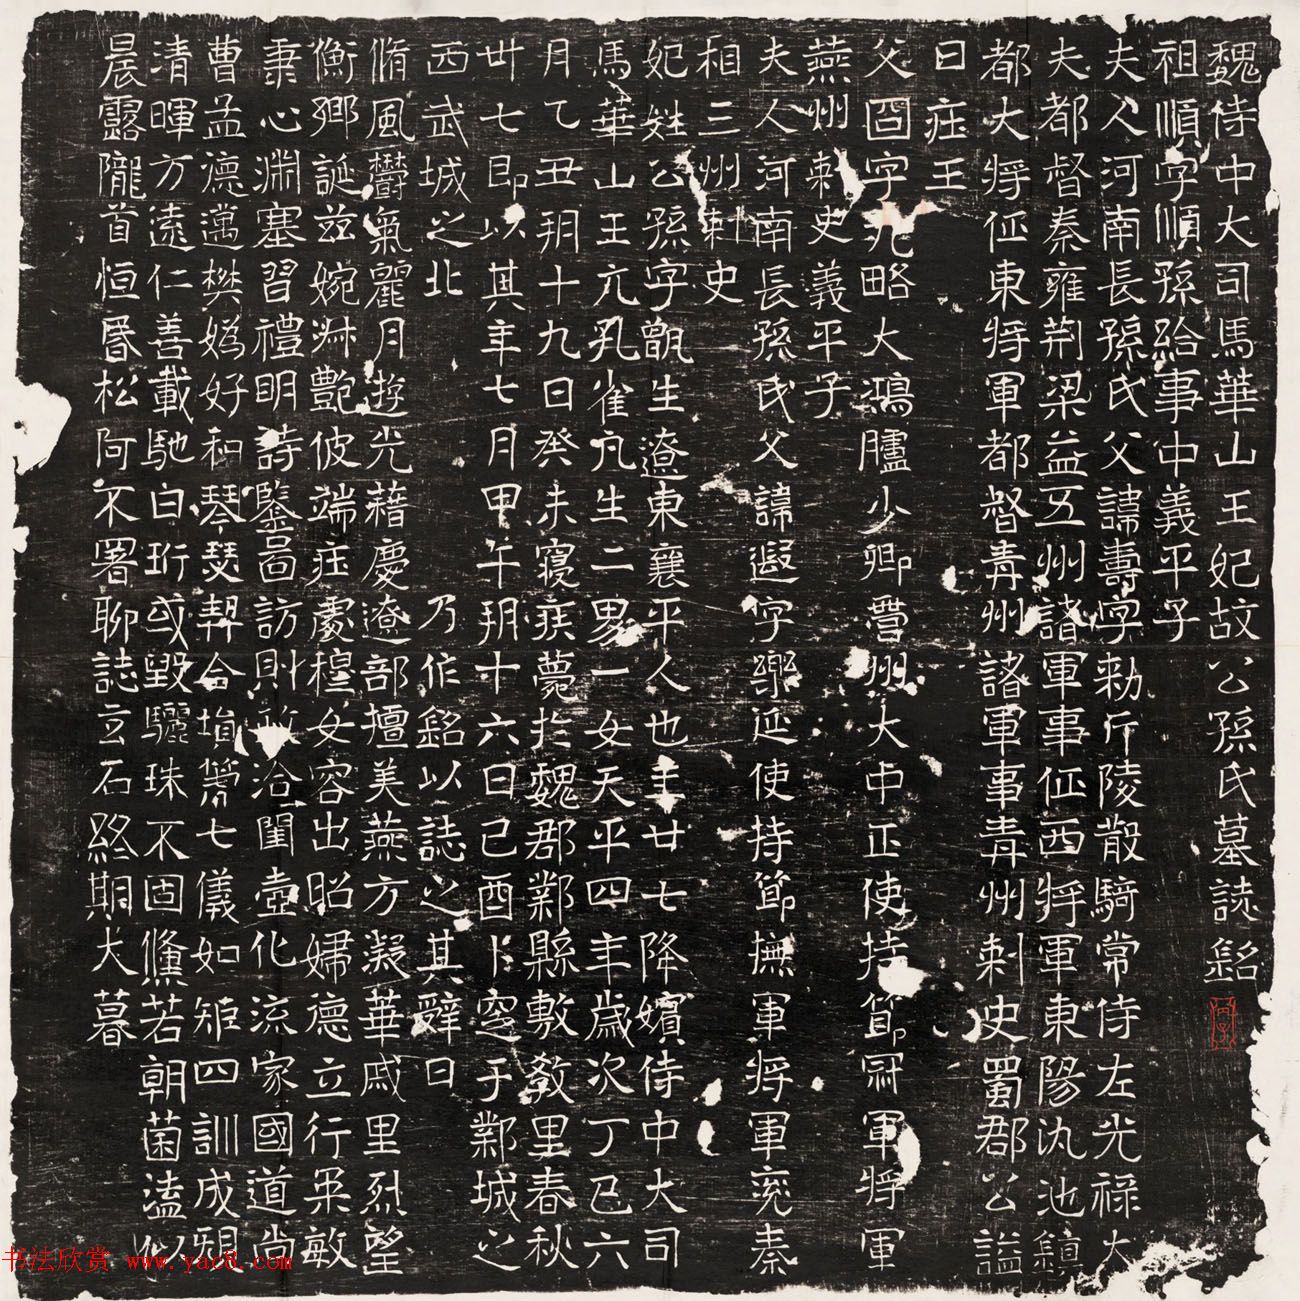 魏侍中大司馬華山王妃故公孫氏墓誌銘
祖順字順孫給事中義平子
夫人河南長孫氏父諱壽字勑斤陵散騎常侍左光祿大
夫都督秦雍荆梁益五州諸軍事征西將軍東陽仇池鎮
都大將征東將軍都督青州諸軍事青州刺史蜀郡公謚
曰莊王
父冏字九略大鴻臚少卿營州大中正使持節冠軍將軍
燕州刺史義平子
夫人河南長孫氏父諱遐字樂延使持節撫軍將軍兖秦
相三州刺史
妃姓公孫字甑生遼東襄平人也年廿七降嬪侍中大司
馬華山王亢孔雀凡生二男一女天平四年歲次丁巳六
月乙丑朔十九日癸未寢疾薨於魏郡鄴縣敷教里春秋
卅七即以其年七月甲午朔十六日己酉卜窆于鄴城之
西武城之北 乃作銘以誌之其辭曰
脩風欝氣麗月遊光藉慶遼部擅美燕方凝華戚里烈望
衡鄉誕兹婉淋艷彼端莊處穆女容出昭婦德立行柔敏
秉心淵塞習禮明詩鑒啚訪則洽閨壼化流家國道尚
曹孟德邁樊嬀好和琴瑟契合塤箎七儀如矩四訓成規
清暉方遠仁善載馳白珩或毀驪珠不固儵若朝菌溘
晨露隴首恒昏松阿不署聊誌玄石終期大暮
书法欣赏 www.yac8.com